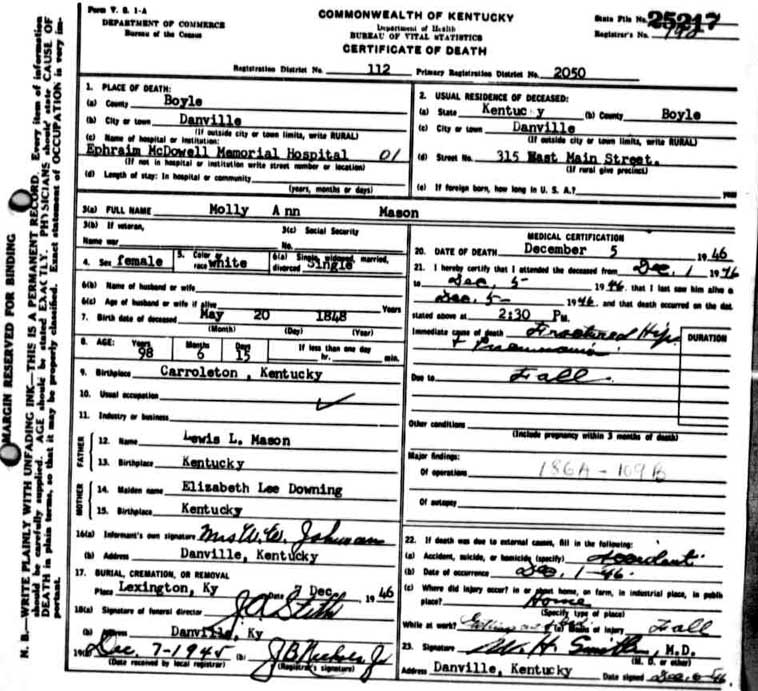 Form V. S. 1-A
DEPARTMENT OF COMMERCE
Bureau of the Census
COMMONWEALTH OF KENTUCKY
Department of Health
BUREAU OF VITAL STATISTICS
CERTIFICATE OF DEATH
State File No. 25217
Registrar's No.
Registration District No. 112 Primary Registration District No. 2050
MARGIN RESERVED FOR BINDING
N. B.—WRITE PLAINLY WITH UNFADING INK—THIS IS A PERMANENT RECORD. Every item of information
should be carefully supplied. AGE should be stated EXACTLY. PHYSICIANS should state CAUSE OF
DEATH in plain terms, so that it may be properly classified. Exact statement of OCCUPATION is very im-
portant.
1. PLACE OF DEATH:
(a) County Boyle
(b) City or town Danville
(If outside city or town limits, write RURAL)
(c) Name of hospital or institution:
Ephraim McDowell Memorial Hospital 01
(If not in hospital or institution write street number or location)
(d) Length of stay: In hospital or community
(years, months or days)
2. USUAL RESIDENCE OF DECEASED:
(a) State Kentuc y (b) County Boyle
(c) City or town Danville
(If outside city or town limits, write RURAL)
(d) Street No. 315 East Main Street.
(If rural give precinct)
(e) If foreign born, how long in U. S. A.? years
3(a) FULL NAME Molly Ann Mason
3(b) If veteran,
Name war
3(c) Social Security
No.
4. Sex female
5. Color or race white
6(a) Single, widowed, married,
divorced Single
6(b) Name of husband or wife
6(c) Age of husband or wife if alive Years
7. Birth date of deceased May 20 1848
(Month) (Day) (Year)
8. AGE: Years Months Days If less than one day
98 6 15 hr. min.
9. Birthplace Carroleton , Kentucky
10. Usual occupation
11. Industry or business
FATHER
12. Name Lewis L. Mason
13. Birthplace Kentucky
MOTHER
14. Maiden name Elizabeth Lee Downing
15. Birthplace Kentucky
16(a) Informant's own signature Mrs W.W. Johnson
(b) Address Danville, Kentucky
17. BURIAL, CREMATION, OR REMOVAL
Place Lexington, Ky Date 7 Dec. 1946
18(a) Signature of funeral director J.A. Stith
(b) Address Danville, Ky
19(a) Dec. 7-1945 (b) J B Nichols Jr
(Date received by local registrar) (Registrar's signature)
MEDICAL CERTIFICATION
20. DATE OF DEATH December 5 1946
21. I hereby certify that I attended the deceased from Dec. 1 1946
to Dec, 5- 1946 that I last saw him alive o
Dec. 5- 1946 and that death occurred on the dat
stated above at 2:30 P.M.
Immediate cause of death Fractured Hip
+ Pneumonia
DURATION
Due to Fall
Other conditions
(Include pregnancy within 3 months of death)
Major findings:
Of operations 186A-109B
Of autopsy
22. If death was due to external causes, fill in the following:
(a) Accident, suicide, or homicide (specify) Accident
(b) Date of occurrence Dec. 1-46.
(c) Where did injury occur? in or about home, on farm, in industrial place, in public
place? Home
(Specify type of place)
While at work? Means of injury Fall
23. Signature M.D.
(M. D. or other)
Address Danville, Kentucky Date signed